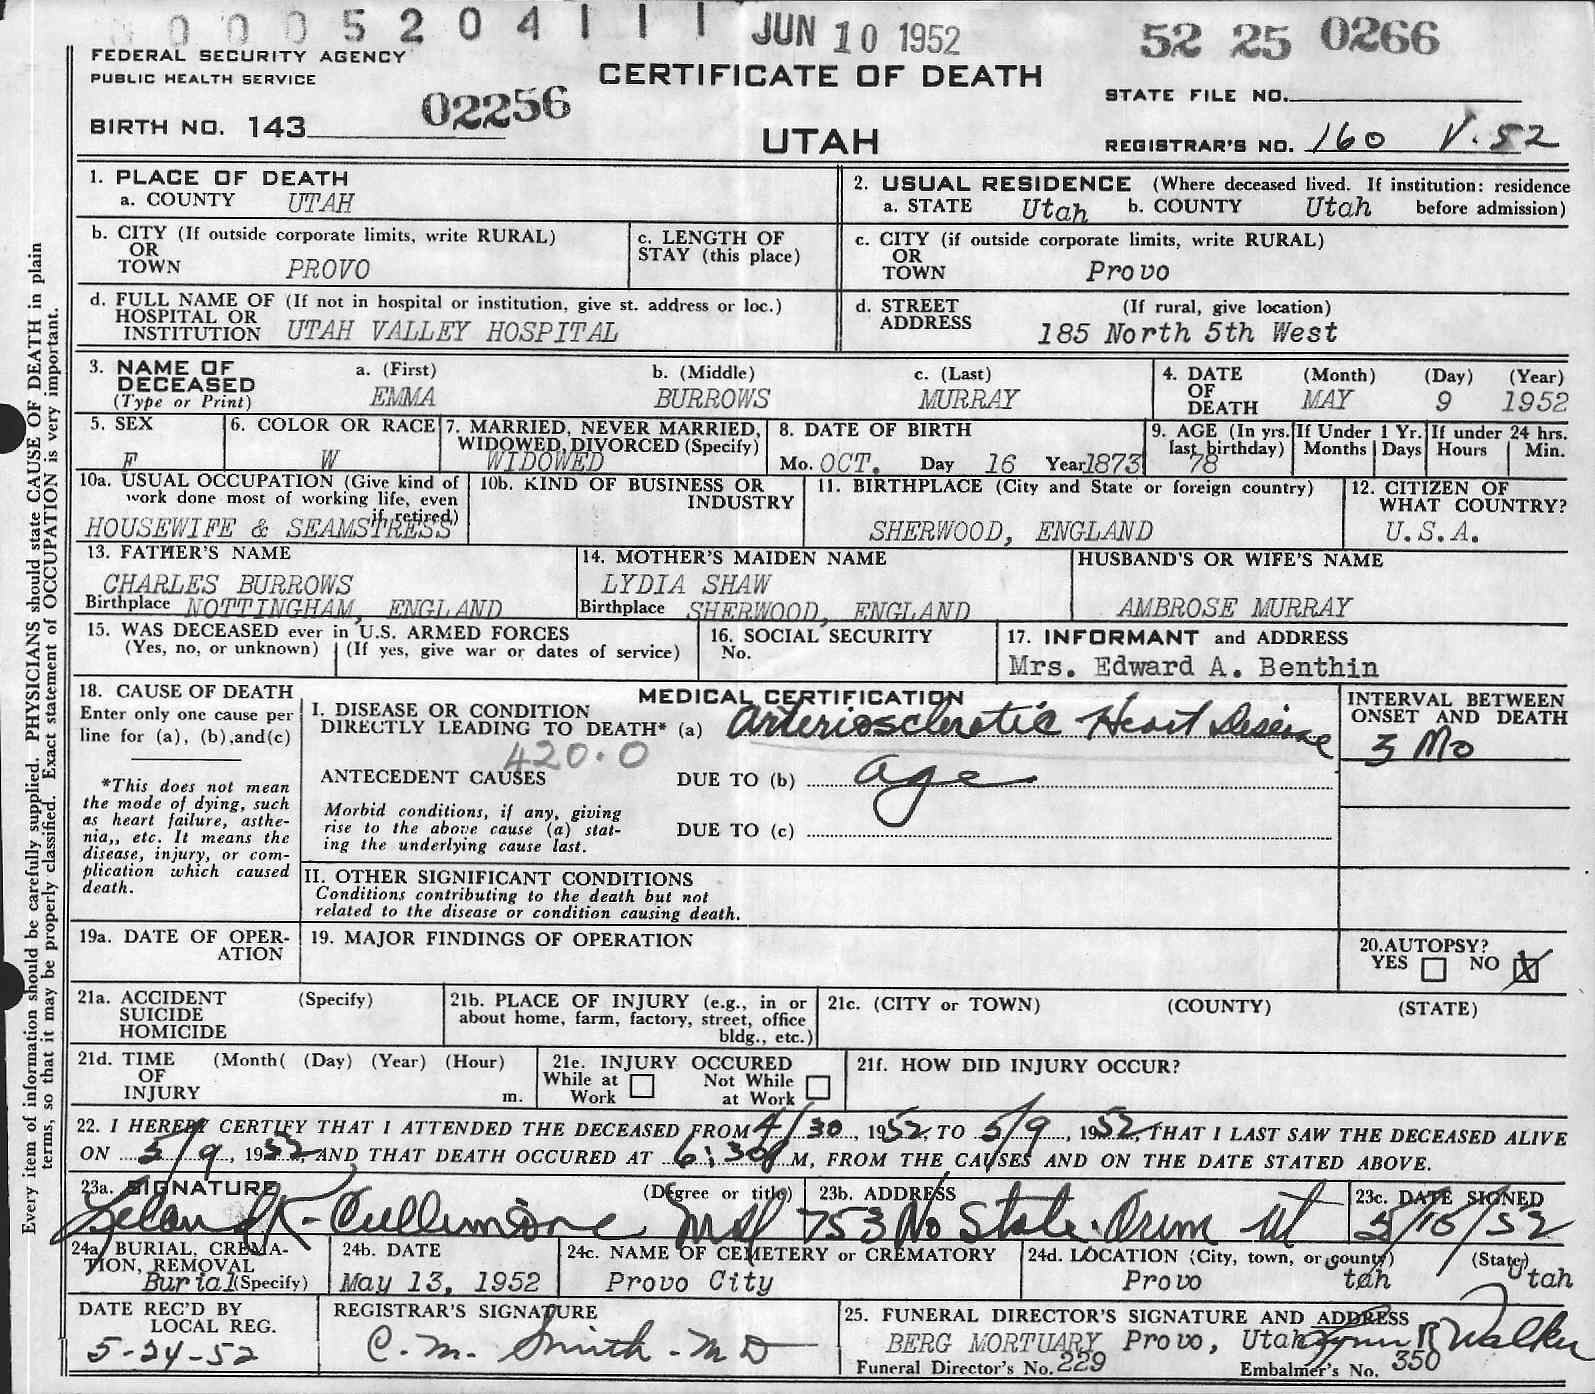 0 0 0 5 2 0 4 1 1 1 JUN 10 1952 52 25 0266
FEDERAL SECURITY AGENCY
PUBLIC HEALTH SERVICE
CERTIFICATE OF DEATH
STATE FILE NO.
BIRTH NO. 143 02256
UTAH
REGISTRAR'S NO. 160 V.52
1. PLACE OF DEATH
a. COUNTY UTAH
2. USUAL RESIDENCE (Where deceased lived. If institution: residence
a. STATE Utah b. COUNTY Utah before admission)
b. CITY (If outside corporate limits, write RURAL)
OR
TOWN PROVO
c. LENGTH OF
STAY (this place)
c. CITY (if outside corporate limits, write RURAL)
OR
TOWN Provo
d. FULL NAME OF (If not in hospital or institution, give st. address or loc.)
HOSPITAL OR
INSTITUTION UTAH VALLEY HOSPITAL
d. STREET (If rural, give location)
ADDRESS 185 North 5th West
3. NAME OF a. (First) b. (Middle) c. (Last)
DECEASED
(Type or Print) EMMA BURROWS MURRAY
4. DATE (Month) (Day) (Year)
OF
DEATH MAY 9 1952
5. SEX
F
6. COLOR OR RACE
W
7. MARRIED, NEVER MARRIED,
WIDOWED, DIVORCED (Specify)
WIDOWED
8. DATE OF BIRTH
Mo. OCT. Day 16 Year 1873
9. AGE (In yrs.
last birthday)
78
If Under 1 Yr.
Months Days
If under 24 hrs.
Hours Min.
10a. USUAL OCCUPATION (Give kind of
work done most of working life, even
if retired)
HOUSEWIFE & SEAMSTRESS
10b. KIND OF BUSINESS OR
INDUSTRY
11. BIRTHPLACE (City and State or foreign country)
SHERWOOD, ENGLAND
12. CITIZEN OF
WHAT COUNTRY?
U.S.A.
13. FATHER'S NAME
CHARLES BURROWS
Birthplace NOTTINGHAM, ENGLAND
14. MOTHER'S MAIDEN NAME
LYDIA SHAW
Birthplace SHERWOOD, ENGLAND
HUSBAND'S OR WIFE'S NAME
AMBROSE MURRAY
15. WAS DECEASED ever in U.S. ARMED FORCES
(Yes, no, or unknown) (If yes, give war or dates of service)
16. SOCIAL SECURITY
No.
17. INFORMANT and ADDRESS
Mrs. Edward A. Benthin
18. CAUSE OF DEATH
Enter only one cause per
line for (a), (b),and(c)
*This does not mean
the mode of dying, such
as heart failure, asthe-
nia,, etc. It means the
disease, injury, or com-
plication which caused
death.
MEDICAL CERTIFICATION
I. DISEASE OR CONDITION
DIRECTLY LEADING TO DEATH* (a) Arteriosclerotic Heart Disease
420.0
ANTECEDENT CAUSES DUE TO (b) age
Morbid conditions, if any, giving
rise to the above cause (a) stat-
ing the underlying cause last.
DUE TO (c)
INTERVAL BETWEEN
ONSET AND DEATH
3 Mo
II. OTHER SIGNIFICANT CONDITIONS
Conditions contributing to the death but not
related to the disease or condition causing death.
19a. DATE OF OPER-
ATION
19. MAJOR FINDINGS OF OPERATION
20.AUTOPSY?
YES NO X
21a. ACCIDENT (Specify)
SUICIDE
HOMICIDE
21b. PLACE OF INJURY (e.g., in or
about home, farm, factory, street, office
bldg., etc.)
21c. (CITY or TOWN) (COUNTY) (STATE)
21d. TIME (Month( (Day) (Year) (Hour)
OF
INJURY m.
21e. INJURY OCCURED
While at Work Not While at Work
21f. HOW DID INJURY OCCUR?
22. I HEREBY CERTIFY THAT I ATTENDED THE DECEASED FROM 4/30, 1952, TO 5/9, 1952, THAT I LAST SAW THE DECEASED ALIVE
ON 5/9, 1952, AND THAT DEATH OCCURED AT 6:30P M, FROM THE CAUSES AND ON THE DATE STATED ABOVE.
23a. SIGNATURE (Degree or title)
Leland K. Cullimore MD
23b. ADDRESS
753 No State. Orem Ut
23c. DATE SIGNED
5/15/52
24a. BURIAL, CREMA-
TION, REMOVAL
Burial (Specify)
24b. DATE
May 13, 1952
24c. NAME OF CEMETERY or CREMATORY
Provo City
24d. LOCATION (City, town, or county) (State)
Provo tah Utah
DATE REC'D BY
LOCAL REG.
5-24-52
REGISTRAR'S SIGNATURE
C. M. Smith - M D
25. FUNERAL DIRECTOR'S SIGNATURE AND ADDRESS
BERG MORTUARY Provo, Utah Lynn R Walker
Funeral Director's No. 229 Embalmer's No. 350
Every item of information should be carefully supplied. PHYSICIANS should state CAUSE OF DEATH in plain
terms, so that it may be properly classified. Exact statement of OCCUPATION is very important.